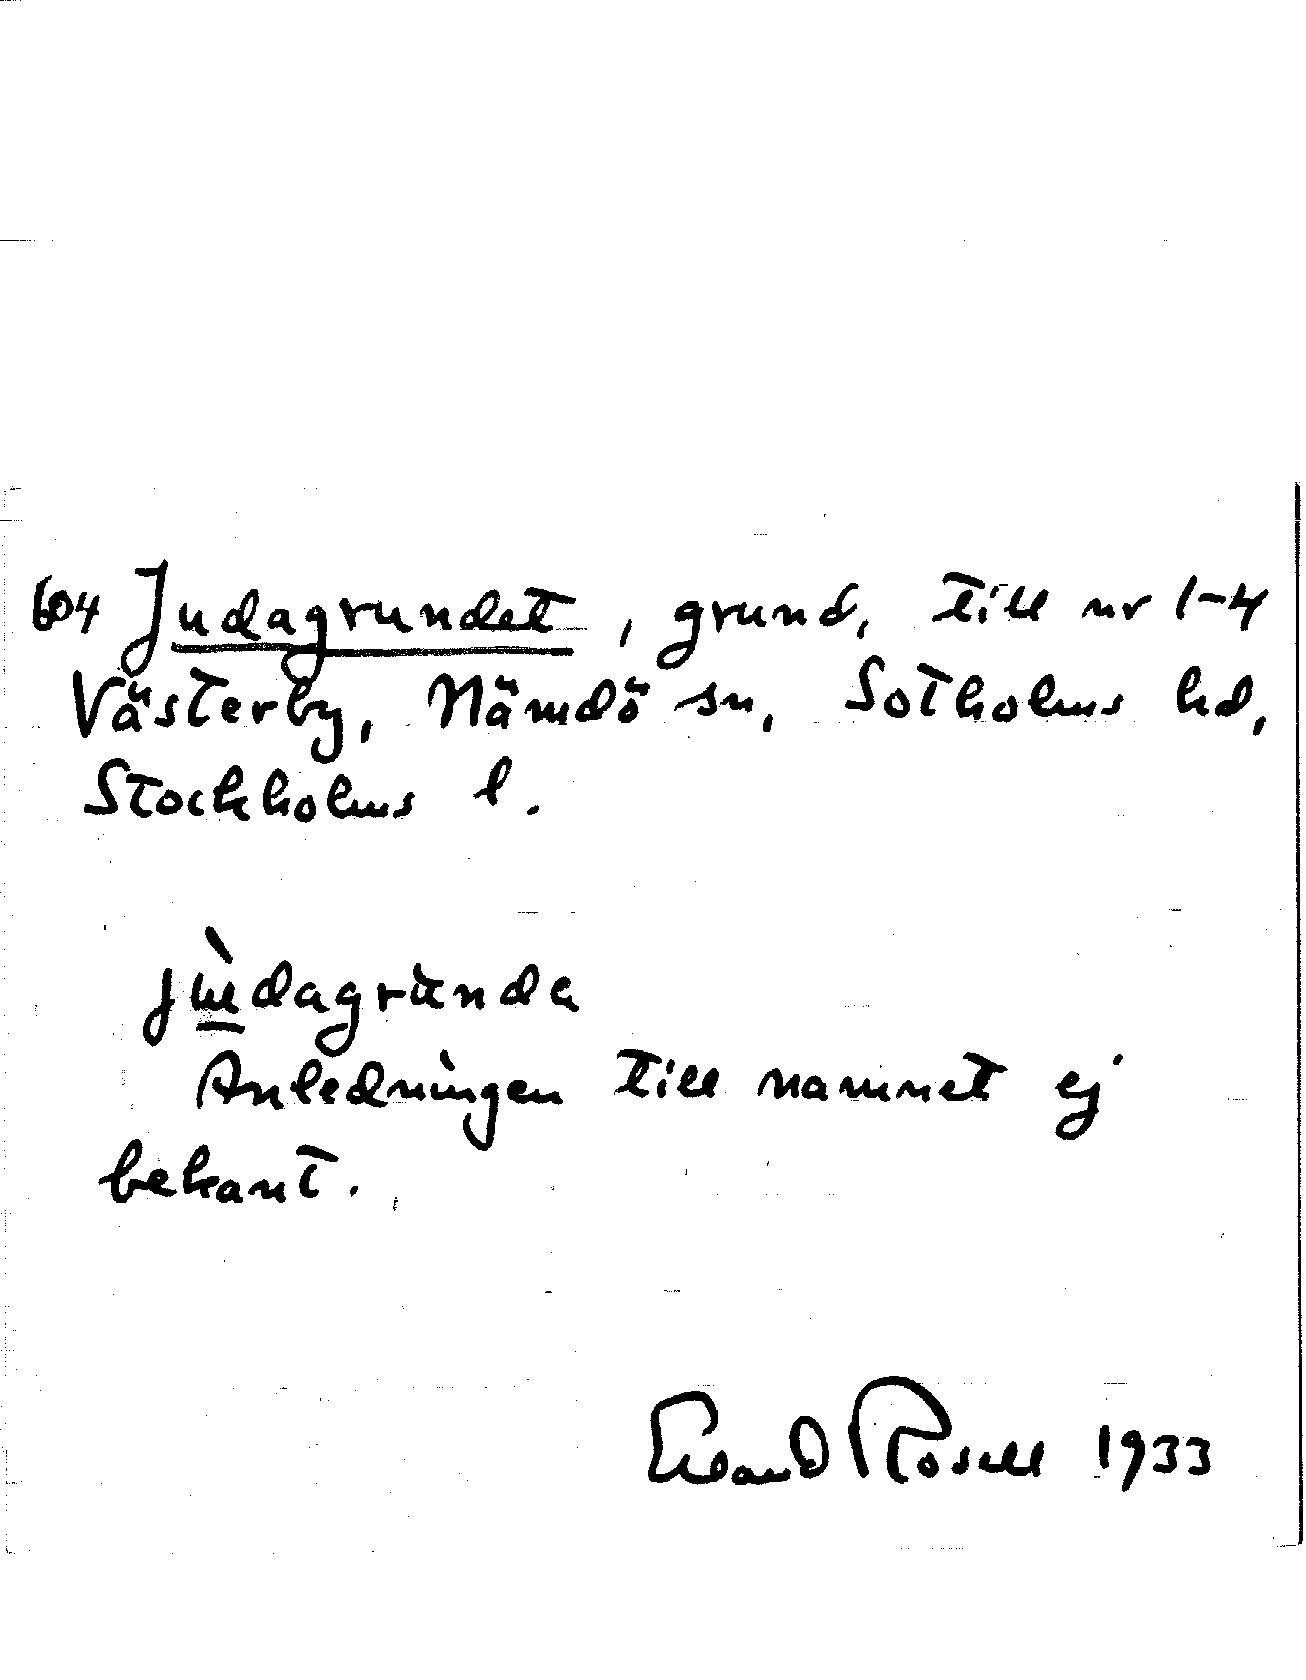 604 Judagrundet, grund, till nr 1-4
Västerby, Nämdö sn, Sotholms hd,
Stockholms l.
jùdagrunda
Anledningen till namnet ej
bekant.
Rosell 1933